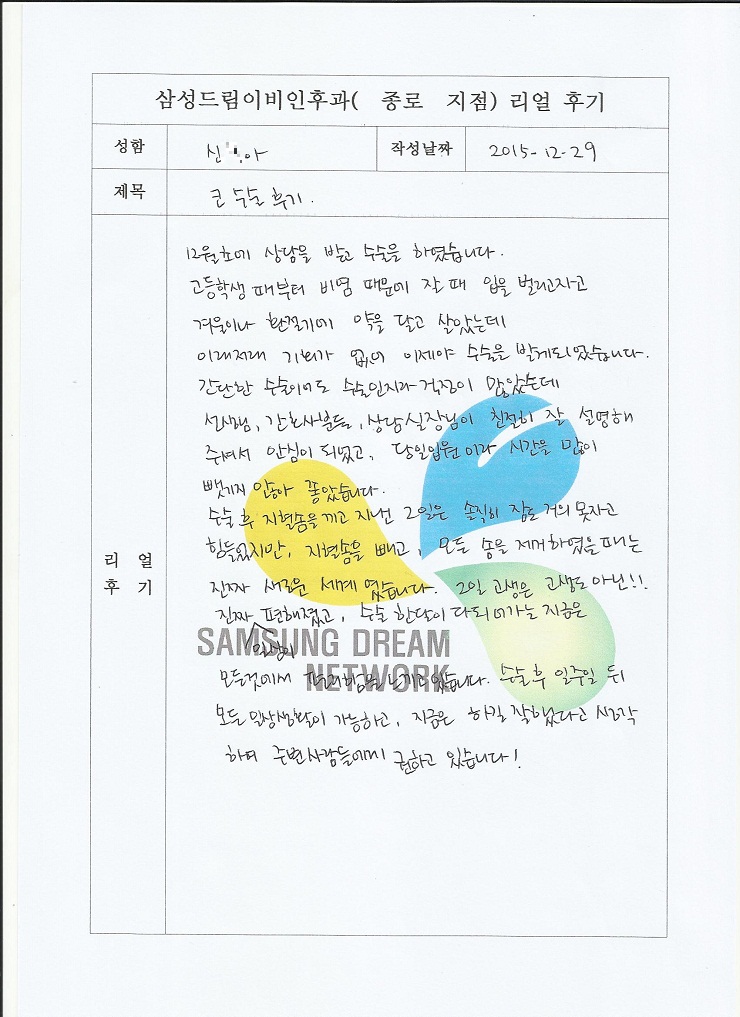 삼성드림이비인후과( 종로 지점) 리얼 후기
성함 신 아 작성날짜 2015-12-29
제목 코 수술 후기.
리얼 후기
12월초에 상담을 받고 수술을 하였습니다.
고등학생 때부터 비염 때문에 잘 때 입을 벌리고자고
겨울이나 환절기에 약을 달고 살았는데
이래저래 기회가 없어 이제야 수술을 받게되었습니다.
간단한 수술이어도 수술인지라 걱정이 많았는데
선생님, 간호사분들, 상담실장님이 친절히 잘 설명해
주셔서 안심이 되었고, 당일입원이라 시간을 많이
뺏기지 않아 좋았습니다.
수술 후 지혈솜을 끼고 지낸 2일은 솔직히 잠도 거의 못자고
힘들었지만, 지혈솜을 빼고, 모든 솜을 제거하였을 때는
진짜 새로운 세계였습니다. 2일 고생은 고생도 아닌!!
진짜 편해졌고, 수술 한달이 다되어가는 지금은
일상이
SAMSUNG DREAM
NETWORK
모든것에서 편리함을 느끼고 있습니다. 수술후 일주일 뒤
모든 일상생활이 가능하고, 지금은 하길 잘했다고 생각
하며 주변사람들에게 권하고 있습니다!